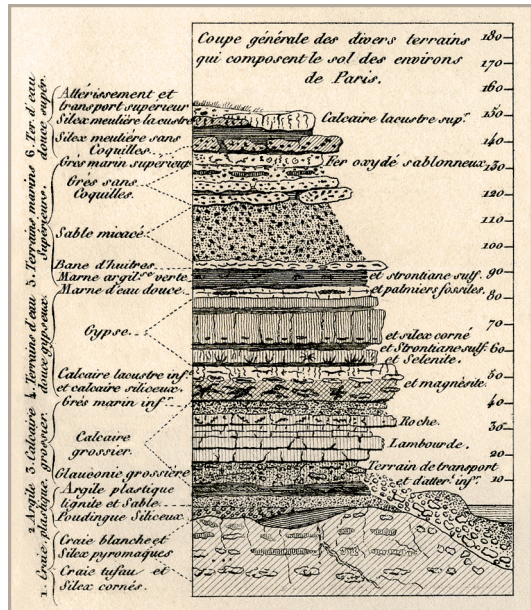 Coupe générale des divers terrains
qui composent le sol des environs
de Paris.
180
170
160
150
140
130
120
110
100
90
80
70
60
50
40
30
20
10
6. Ter. d'eau
douce supér.
5. Terrains marins
Supérieurs.
4. Terrains d'eau
douce gypseux.
3. Calcaire
grossier.
2. Argile
plastique.
1. Craie
Attérissement et
transport supérieur
Silex meulière lacustre
Silex meulière sans
Coquilles.
Grès marin supérieur
Grès sans
Coquilles.
Sable micacé
Banc d'huitres
Marne argilse verte
Marne d'eau douce
Gypse
Calcaire lacustre infr
et calcaire siliceux
Grès marin infr
Calcaire
grossier
Glauconie grossière
Argile plastique
lignite et Sable
Poudingue Siliceux
Craie blanche et
Silex pyromaques
Craie tufau et
Silex cornés.
Calcaire lacustre supr
Fer oxydé sablonneux
et strontiane sulf.
et palmiers fossiles.
et silex corné
et Strontiane sulf.
et Selenite.
et magnésite.
Roche.
Lambourde.
Terrain de transport
et d'atter. infr